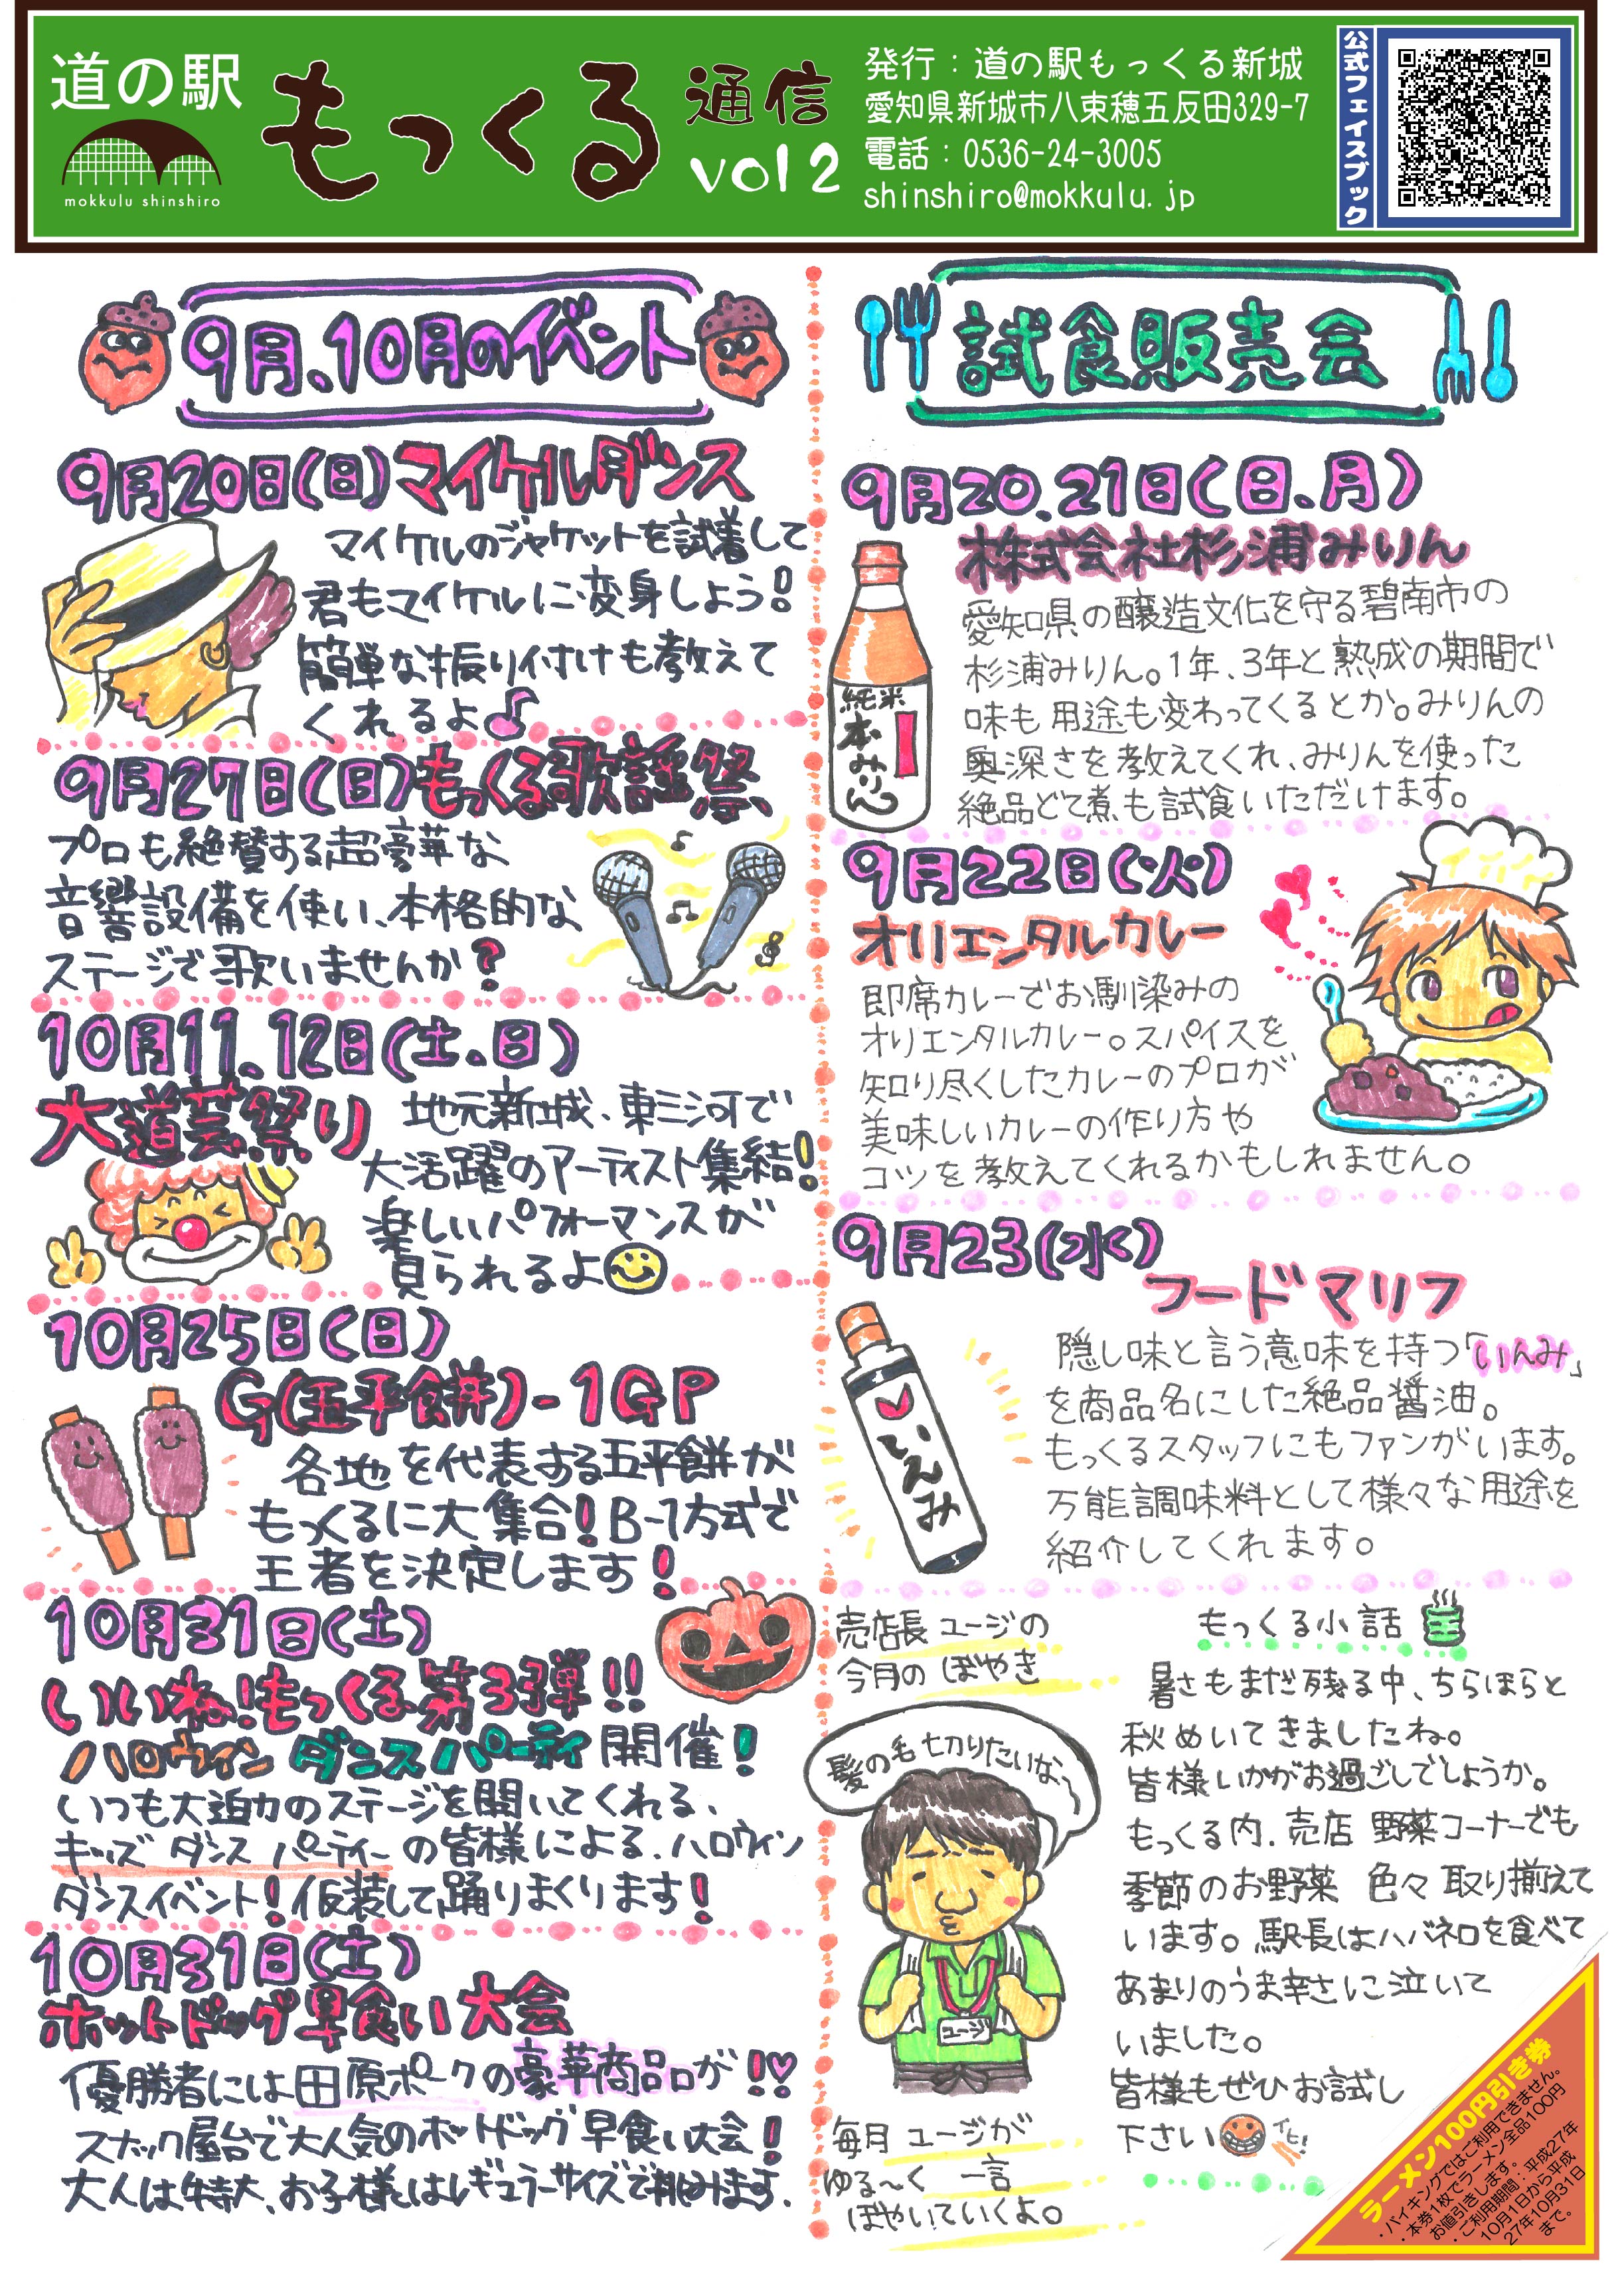 道の駅
mokkulu shinshiro
もっくる
通信
vol 2
発行：道の駅もっくる新城
愛知県新城市八束穂五反田329-7
電話：0536-24-3005
shinshiro@mokkulu.jp
公式フェイスブック
9月、10月のイベント
9月20日(日)マイケルダンス
マイケルのジャケットを試着して
君もマイケルに変身しよう!
簡単な振り付けも教えて
くれるよ♪
9月27日(日)もっくる歌謡祭
プロも絶賛する超豪華な
音響設備を使い、本格的な
ステージで歌いませんか?
10月11.12日(土.日)
大道芸祭り
地元新城、東三河で
大活躍のアーティスト集結!
楽しいパフォーマンスが
見られるよ
10月25日(日)
G(五平餅)-1GP
各地を代表する五平餅が
もっくるに大集合!B-1方式で
王者を決定します!
10月31日(土)
いいね!もっくる第3弾!!
ハロウィン ダンスパーティ開催!
いつも大迫力のステージを開いてくれる、
キッズ ダンス パーティーの皆様による、ハロウィン
ダンスイベント!仮装して踊りまくります!
10月31日(土)
ホットドッグ早食い大会
優勝者には田原ポークの豪華商品が!!♡
スナック屋台で大人気のホットドッグ早食い大会!
大人は特大、お子様はレギュラーサイズで挑みます.
試食販売会
9月20.21日(日、月)
株式会社杉浦みりん
純米
本みりん
愛知県の醸造文化を守る碧南市の
杉浦みりん。1年、3年と熟成の期間で
味も用途も変わってくるとか。みりんの
奥深さを教えてくれ、みりんを使った
絶品どて煮も試食いただけます。
9月22日(火)
オリエンタルカレー
即席カレーでお馴染みの
オリエンタルカレー。スパイスを
知り尽くしたカレーのプロが
美味しいカレーの作り方や
コツを教えてくれるかもしれません。
9月23(水)
フードマリフ
いんみ
隠し味と言う意味を持つ「いんみ」
を商品名にした絶品醤油。
もっくるスタッフにもファンがいます。
万能調味料として様々な用途を
紹介してくれます。
売店長 ユージの
今月の ぼやき
髪の毛切りたいな〜
ユージ
毎月 ユージが
ゆる〜く 一言
ぼやいていくよ。
もっくる小話
暑さもまだ残る中、ちらほらと
秋めいてきましたね。
皆様いかがお過ごしでしょうか。
もっくる内、売店 野菜コーナーでも
季節のお野菜 色々取り揃えて
います。駅長はハバネロを食べて
あまりのうま辛さに泣いて
いました。
皆様もぜひお試し
下さい
イヒ!
ラーメン100円引き券
・バイキングではご利用できません。
・本券1枚でラーメン全品100円
お値引きします。
・ご利用期間：平成27年
10月1日から平成
27年10月31日
まで。